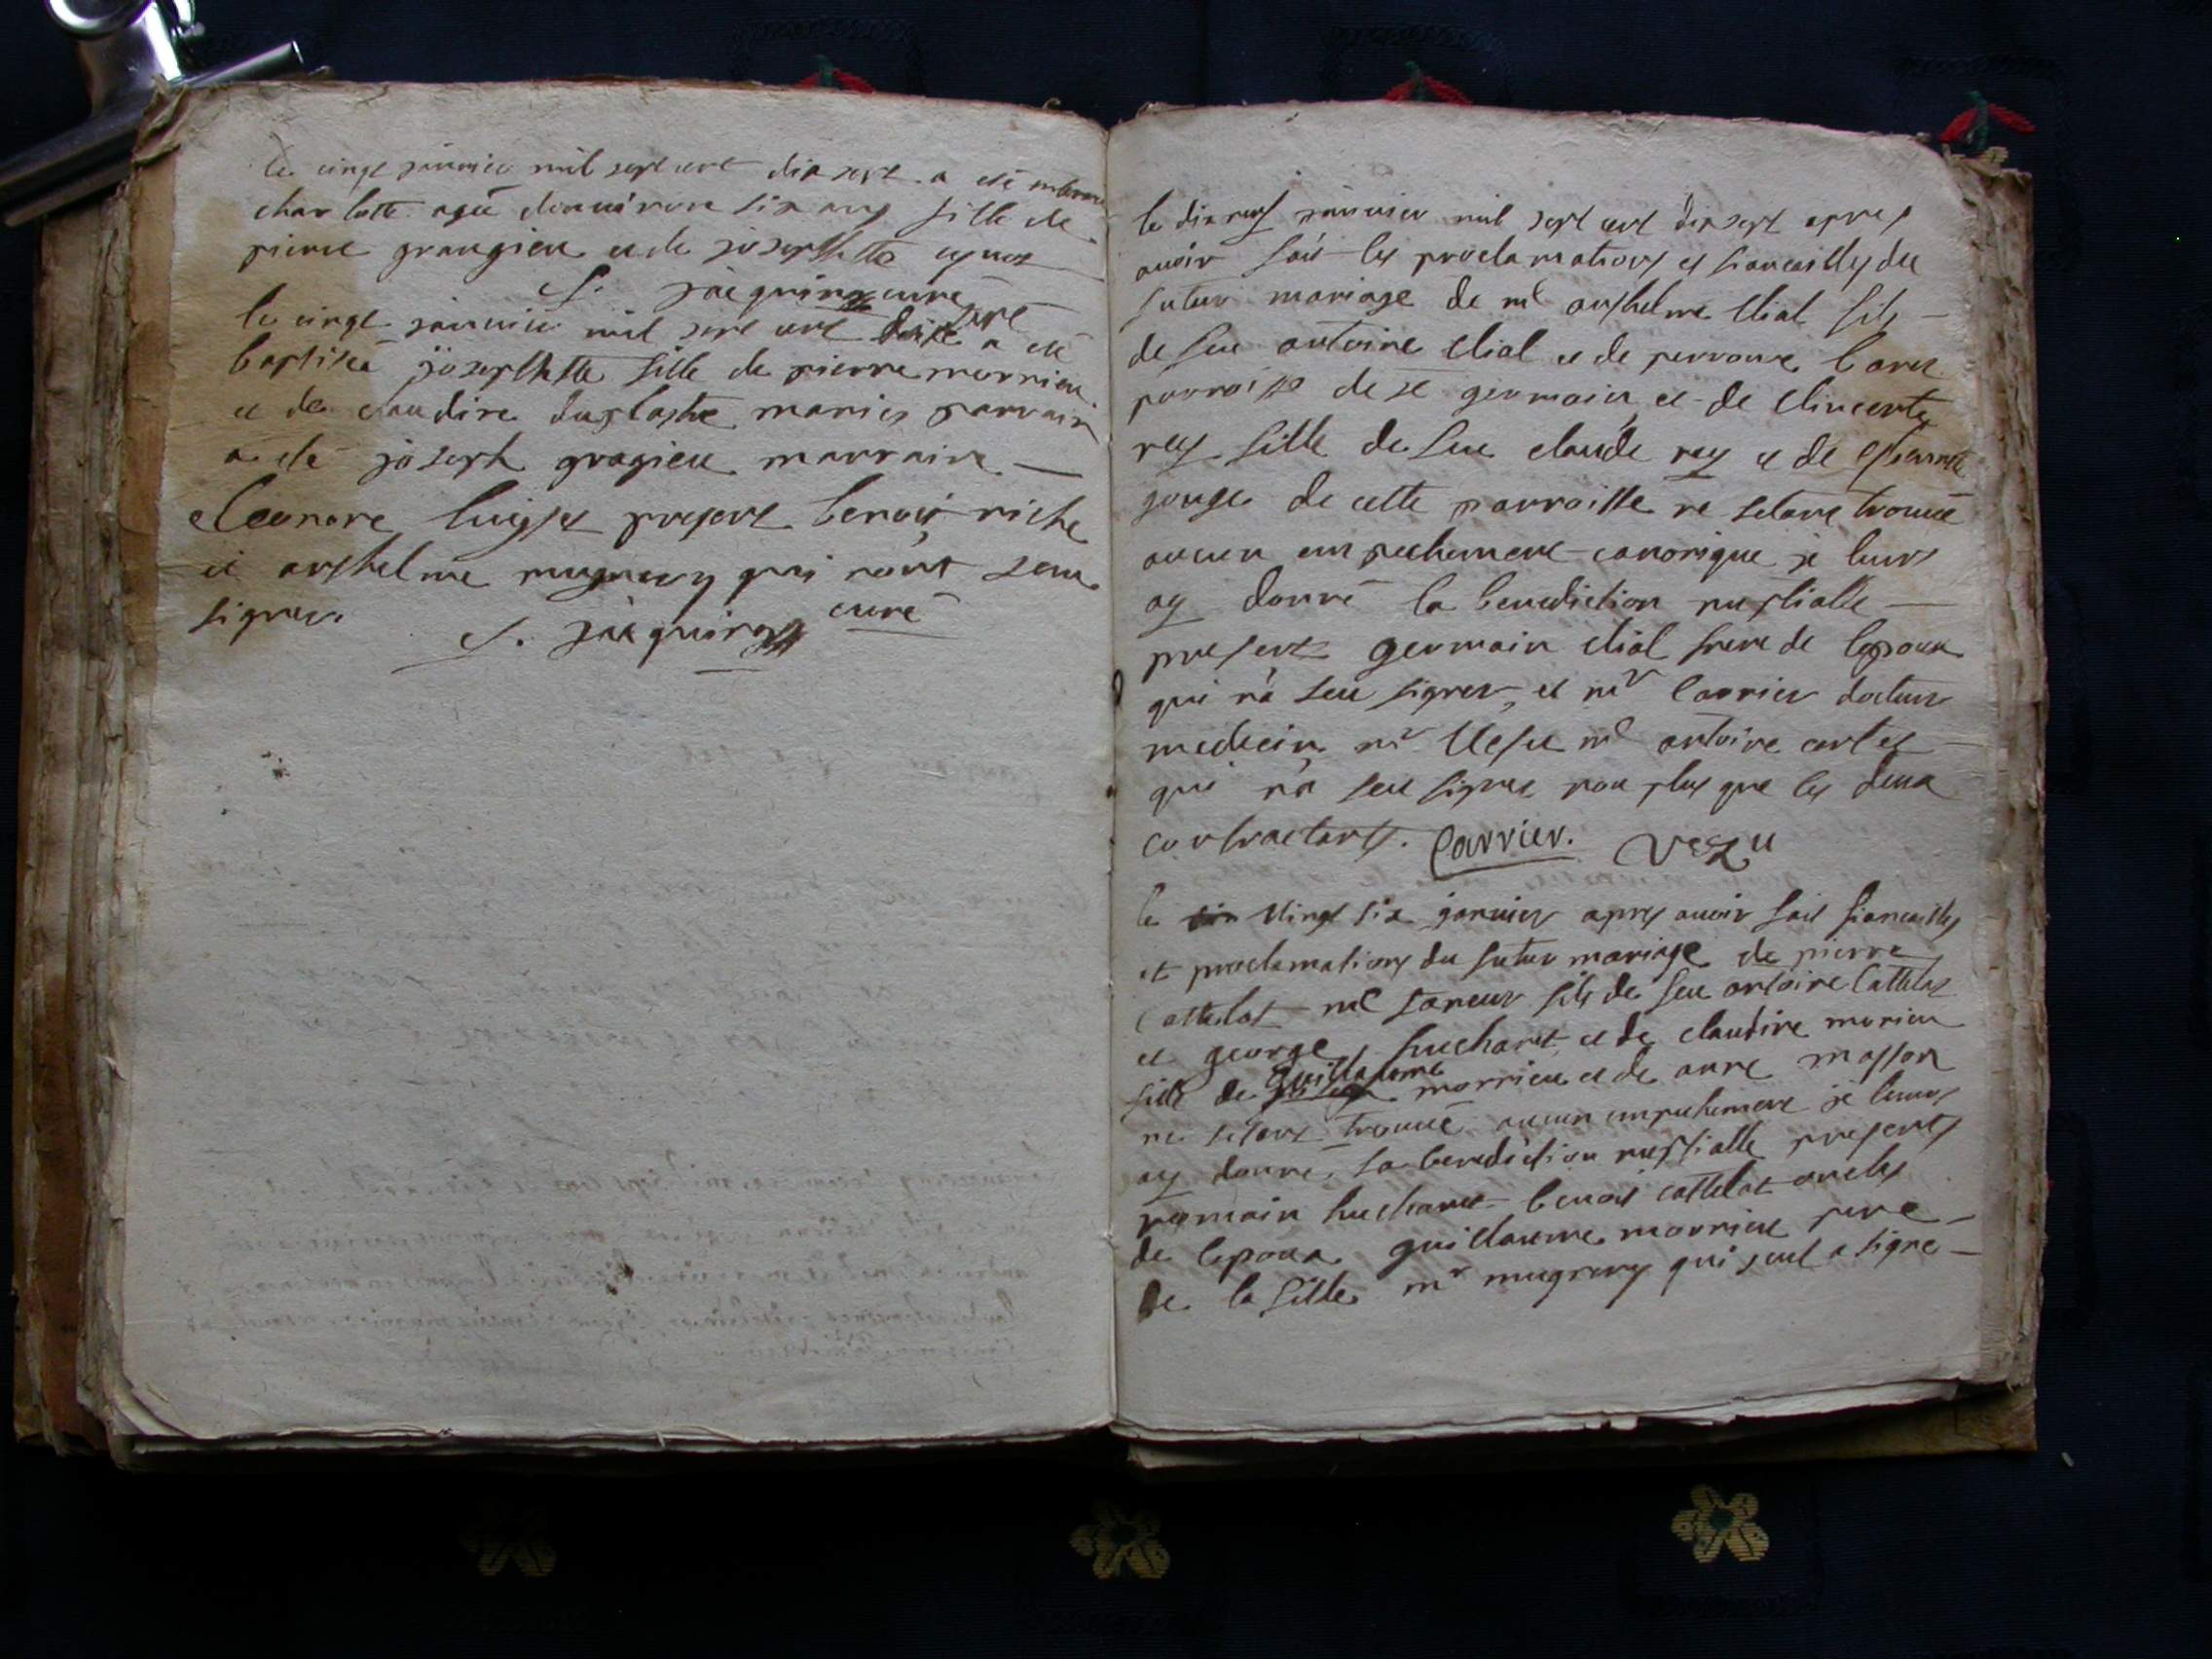 le vingt janvier mil sept cent dix sept a eté enterree
charlotte agée d'environ six ans fille de
pierre grangieu et de josephtte
f. jacquin curé
le vingt janvier mil sept cent dix sept a eté
baptiseé josephtte fille de pierre morrieu
et de claudine mariés parrain
a eté joseph gragieu marraine
eleonore present benoit riche
et anthelme mugnery qui n'ont seu
signer.
f. jacquin curé
le dix neuf janvier mil sept cent dix sept apres
avoir fait les proclamations et fiancailles du
futur mariage de me anthelme vial fils
de feu antoine vial et de perronne
parroisse de st germain et de vincente
rey fille de feu claude rey et de estiennette
gouge de cette parroisse ne setant trouvé
aucun empechement canonique je leurs
ay donné la benediction nuptialle
present germain vial frere de lepoux
qui n'a seu signer, et mr Carrier docteur
medecin mr Vesu me antoine
qui n'a seu signer non plus que les deux
contractants. Carrier. Vezu
le vingt six janvier apres avoir fait fiancailles
et proclamations du futur mariage de pierre
Cattelat me taneur fils de feu antoine Cattelat
et george huchard et de claudine morieu
fille de guillaume morrieu et de anne masson
ne setant trouvé aucun empechement je leurs
ay donné la benediction nuptialle presents
romain huchard benoit cattelat oncles
de lepoux guillaume morrieu pere
de la fille mr mugnery qui seul a signé